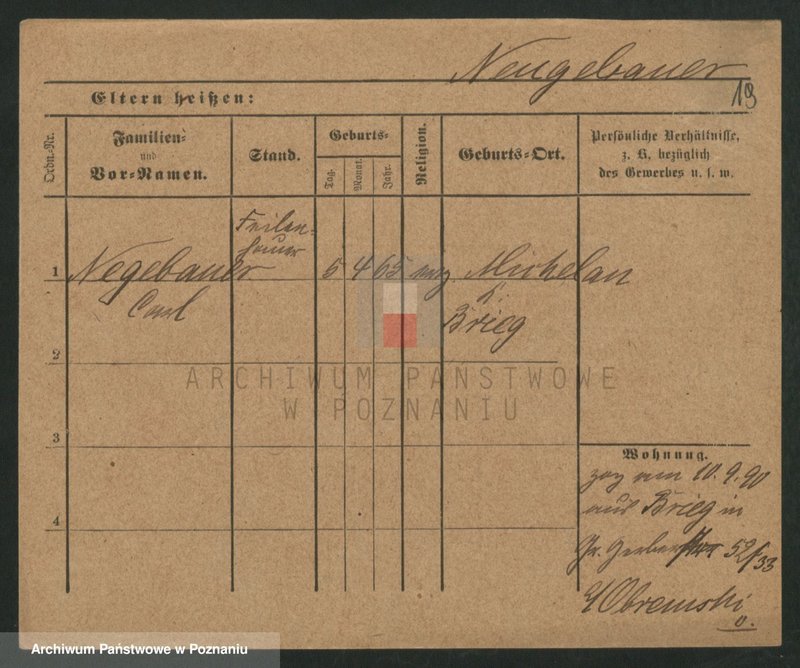 Neugebauer
19
Eltern heißen:
Ordn.-Nr.
Familien-
und
Vor-Namen.
Stand.
Geburts-
Tag.
Monat.
Jahr.
Religion.
Geburts-Ort.
Persönliche Verhältnisse,
z. B. bezüglich
des Gewerbes u. s. w.
1
Negebauer
Carl
Feilen-
hauer
5 4 65 evg Michelau
k.
Brieg
2
3
4
ARCHIWUM PAŃSTWOWE
W POZNANIU
Wohnung.
zog am 10.9.90
aus Brieg in
Gr. Gerberstr 52/53
Obremski
Archiwum Państwowe w Poznaniu